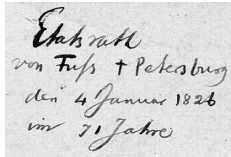 Etatsrath
von Fuſs † Petersburg
den 4 Januar 1826
im 71 Jahre